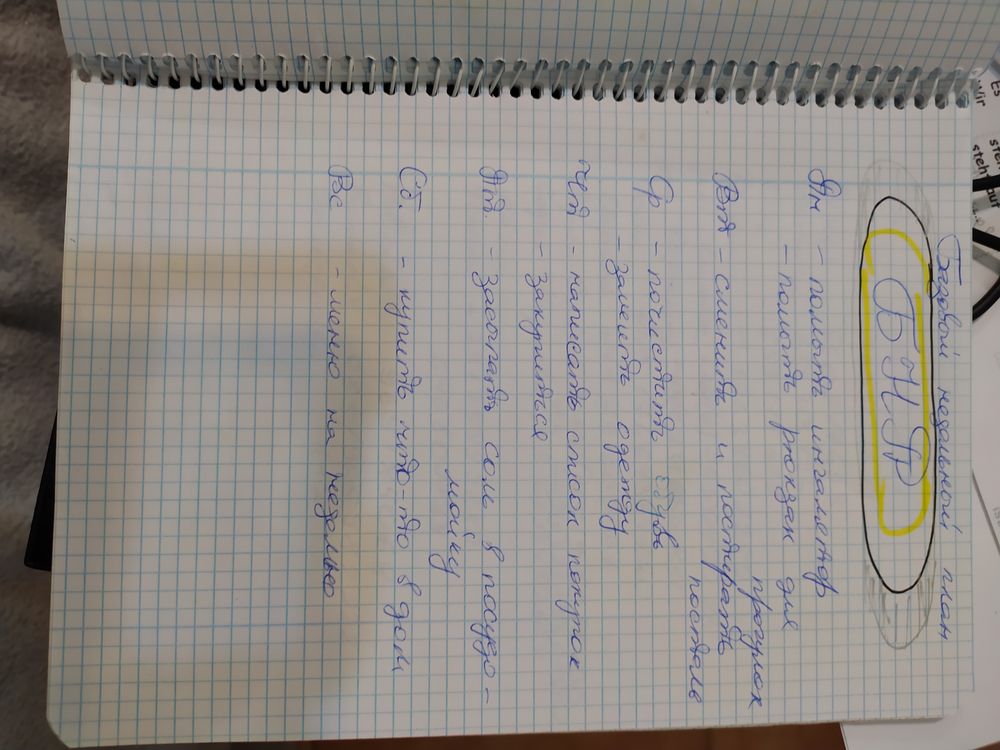 Базовый недельный план
БНП
Пн - помыть ингалятор
- помыть рюкзак для
прогулок
Втр - сменить и постирать
постель
Ср - почистить обувь
- зашить одежду
Чт - написать список покупок
- закупиться
Пт. - засыпать соль в посудо-
мойку
Сб. - купить что-то в дом
Вс - меню на неделю
Es
Wir
steh
steht auf